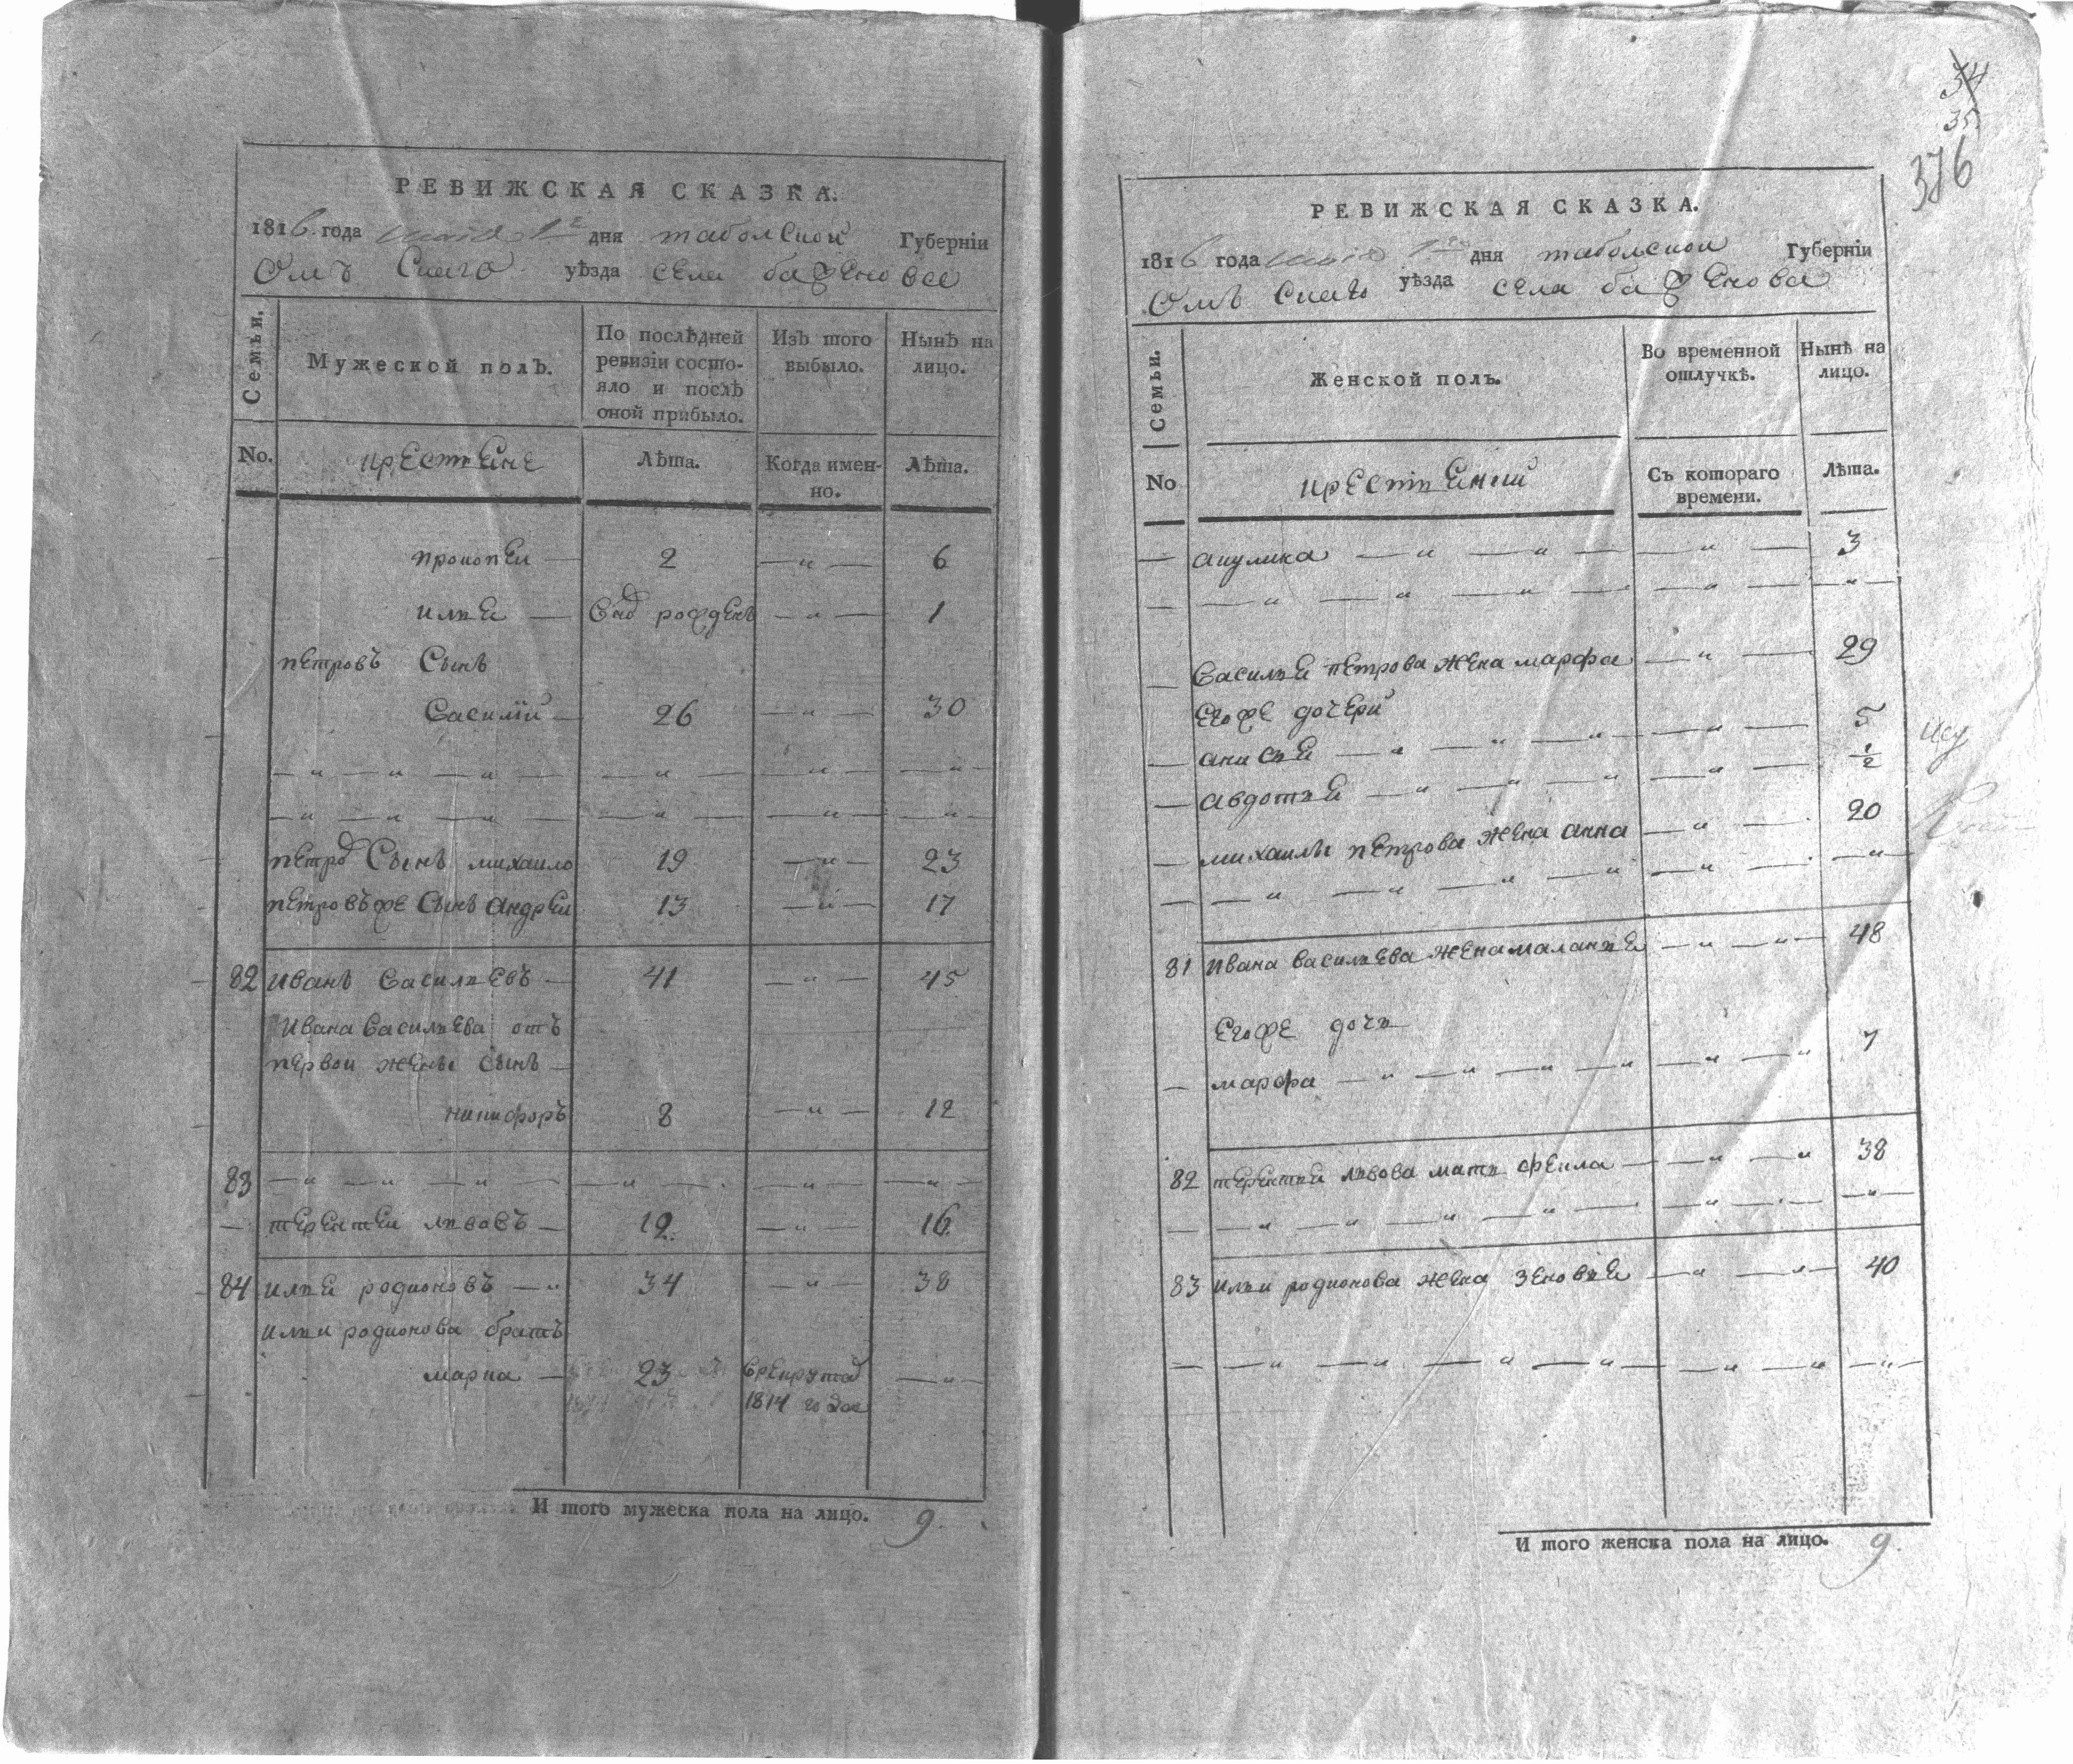 РЕВИЖСКАЯ СКАЗКА.
1816 года маія 1е дня таболской Губерніи
Омъ Скаго уѣзда села баженова
Семьи.
Мужеской полъ.
По послѣдней ревизіи состояло и послѣ оной прибыло.
Изъ того выбыло.
Нынѣ на лицо.
No.
крестьяне
Лѣта.
Когда именно.
Лѣта.
прокопеи — 2 — „ — 6
илье — вно рожденъ — „ — 1
петровъ Сынъ
василий — 26 — „ — 30
— „ — „ — „ — — „ — — „ — — „ —
— „ — „ — „ — — „ — — „ — — „ —
петро Сынъ михаило 19 — „ — 23
петровъ же Сынъ андреи 13 — „ — 17
82 иванъ васильевъ — 41 — „ — 45
ивана васильева отъ
первои жены сынъ —
никифоръ 8 — „ — 12
83 — „ — „ — „ — — „ — — „ — — „ —
— терентеи львовъ — 12 — „ — 16
84 илье родионовъ — „ 34 — „ — 38
ильи родионова братъ
марка — 23 врекрута — „ —
1814 года
И того мужеска пола на лицо. 9.
34
35.
376
РЕВИЖСКАЯ СКАЗКА.
1816 года маія 1го дня таболской Губерніи
Омъ Скаго уѣзда села баженова
Семьи.
Женской полъ.
Во временной отлучкѣ.
Нынѣ на лицо.
No
крестьянкии
Съ котораго времени.
Лѣта.
— акулина — „ — „ — — „ — 3
— — „ — „ — „ — — „ — — „ —
— василье петрова жена марфа — „ — 29
егоже дочери
— анисье — „ — „ — „ — „ — 5
— авдотье — „ — „ — „ — „ — 1/2
— михаилы петрова жена анна — „ — 20
— — „ — „ — „ — „ — „ — — „ —
81 ивана васильева жена маланье — „ — „ — 48
егоже дочь
— марфа — „ — „ — „ — „ — „ — „ 7
82 терентьи львова мать фекла — — „ — „ 38
— — „ — „ — „ — „ — — „ — — „ —
83 ильи родионова жена зеновье — „ — „ — 40
— — „ — „ — „ — „ — „ — „ — „ —
И того женска пола на лицо. 9.